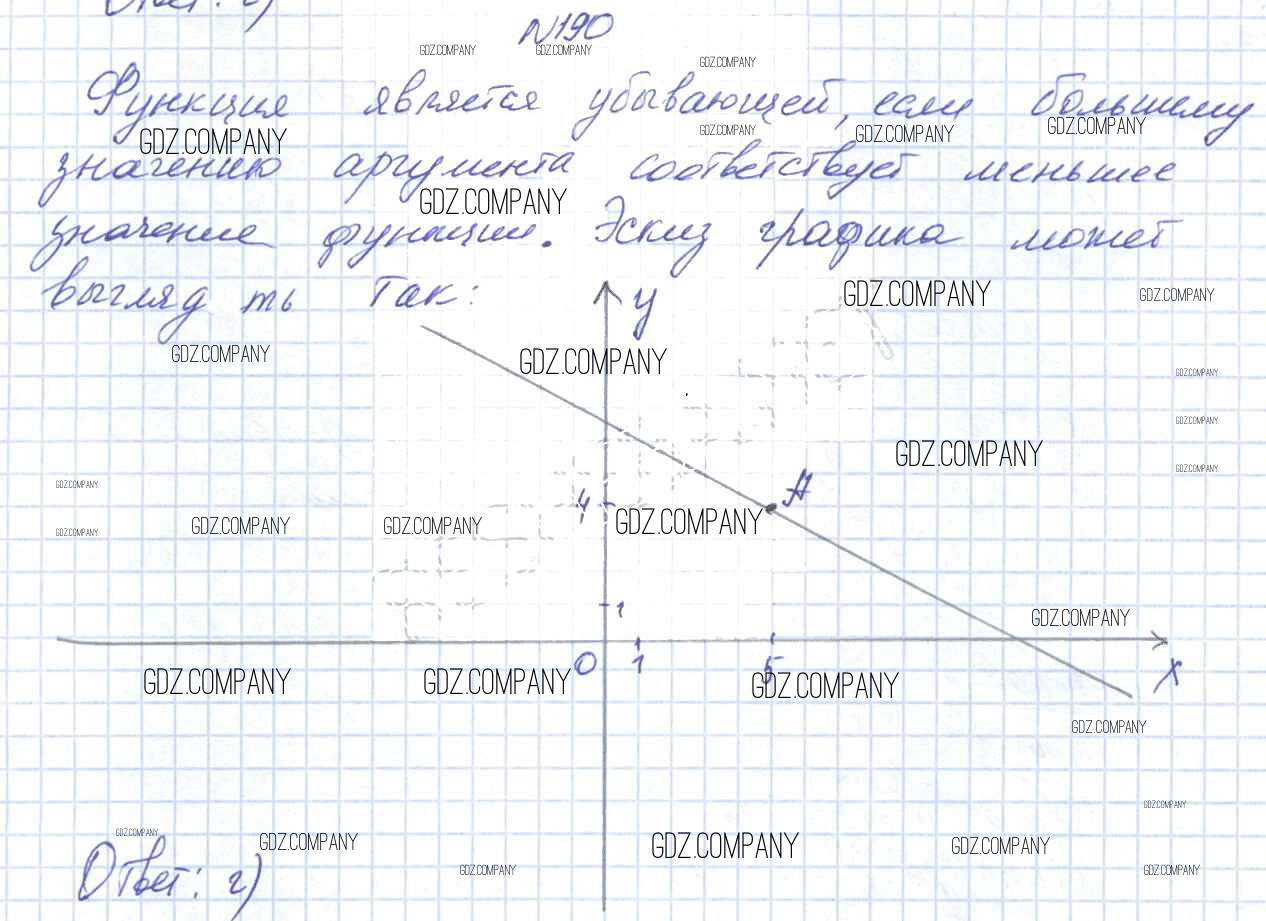 Ответ: г)
N190
GDZ.COMPANY GDZ.COMPANY GDZ.COMPANY
Функция является убывающей, если большему
GDZ.COMPANY GDZ.COMPANY GDZ.COMPANY GDZ.COMPANY
значению аргумента соответствует меньшее
GDZ.COMPANY
значение функции. Эскиз графика может
выгляд ть так: y GDZ.COMPANY GDZ.COMPANY
GDZ.COMPANY GDZ.COMPANY GDZ.COMPANY
GDZ.COMPANY
GDZ.COMPANY GDZ.COMPANY
GDZ.COMPANY A
4
GDZ.COMPANY GDZ.COMPANY GDZ.COMPANY GDZ.COMPANY
1 GDZ.COMPANY
0 1 5 x
GDZ.COMPANY GDZ.COMPANY GDZ.COMPANY
GDZ.COMPANY
GDZ.COMPANY
GDZ.COMPANY GDZ.COMPANY GDZ.COMPANY GDZ.COMPANY
Ответ: г) GDZ.COMPANY GDZ.COMPANY